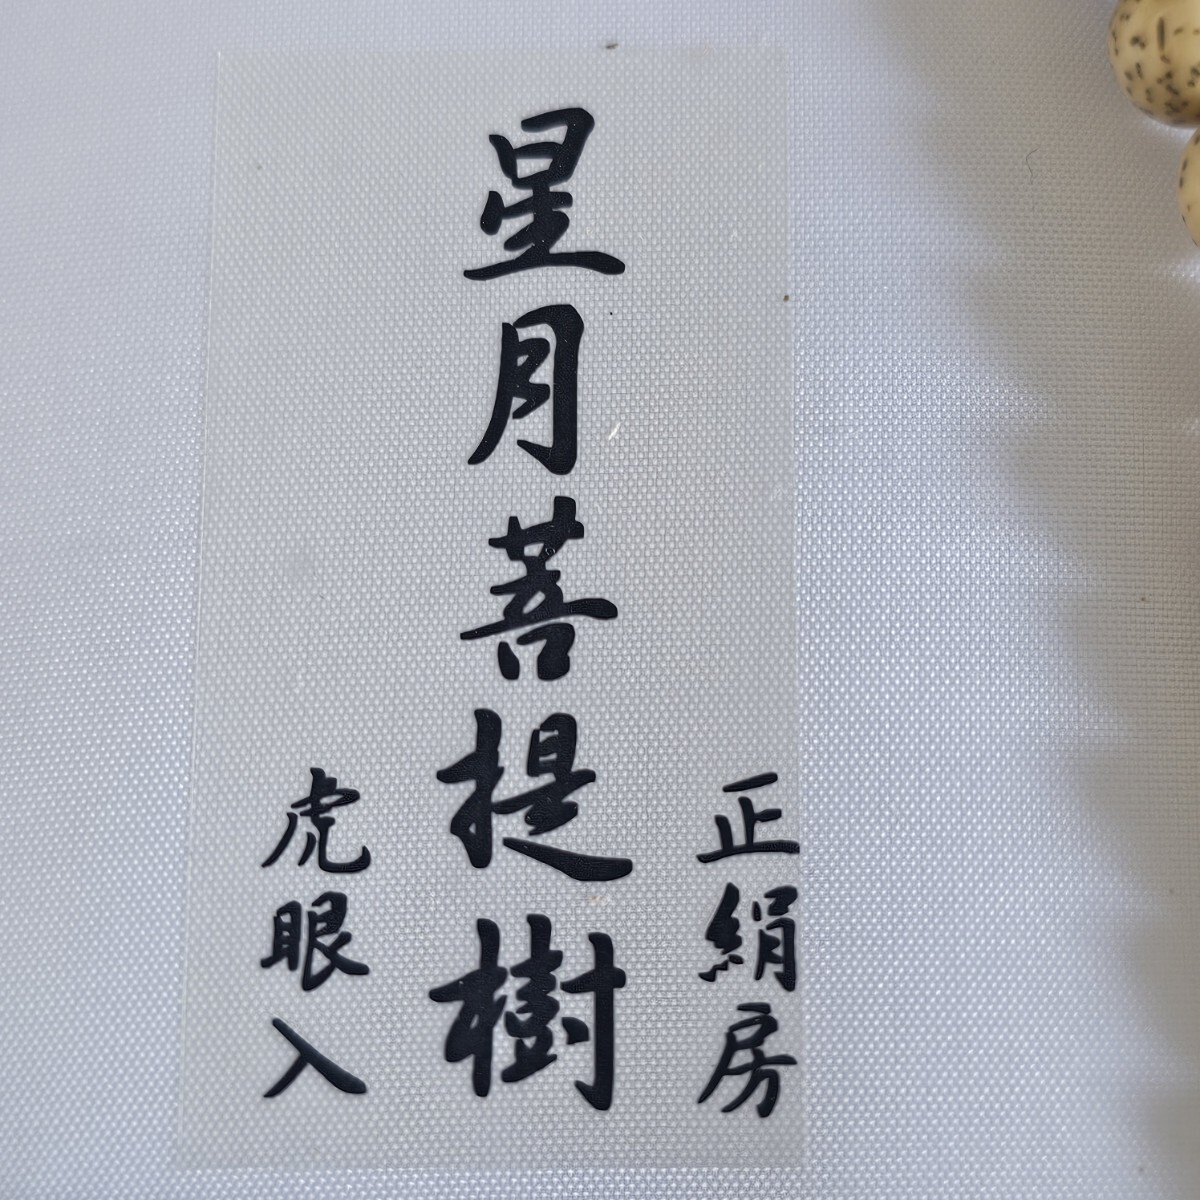 正絹房
星月菩提樹
虎眼入